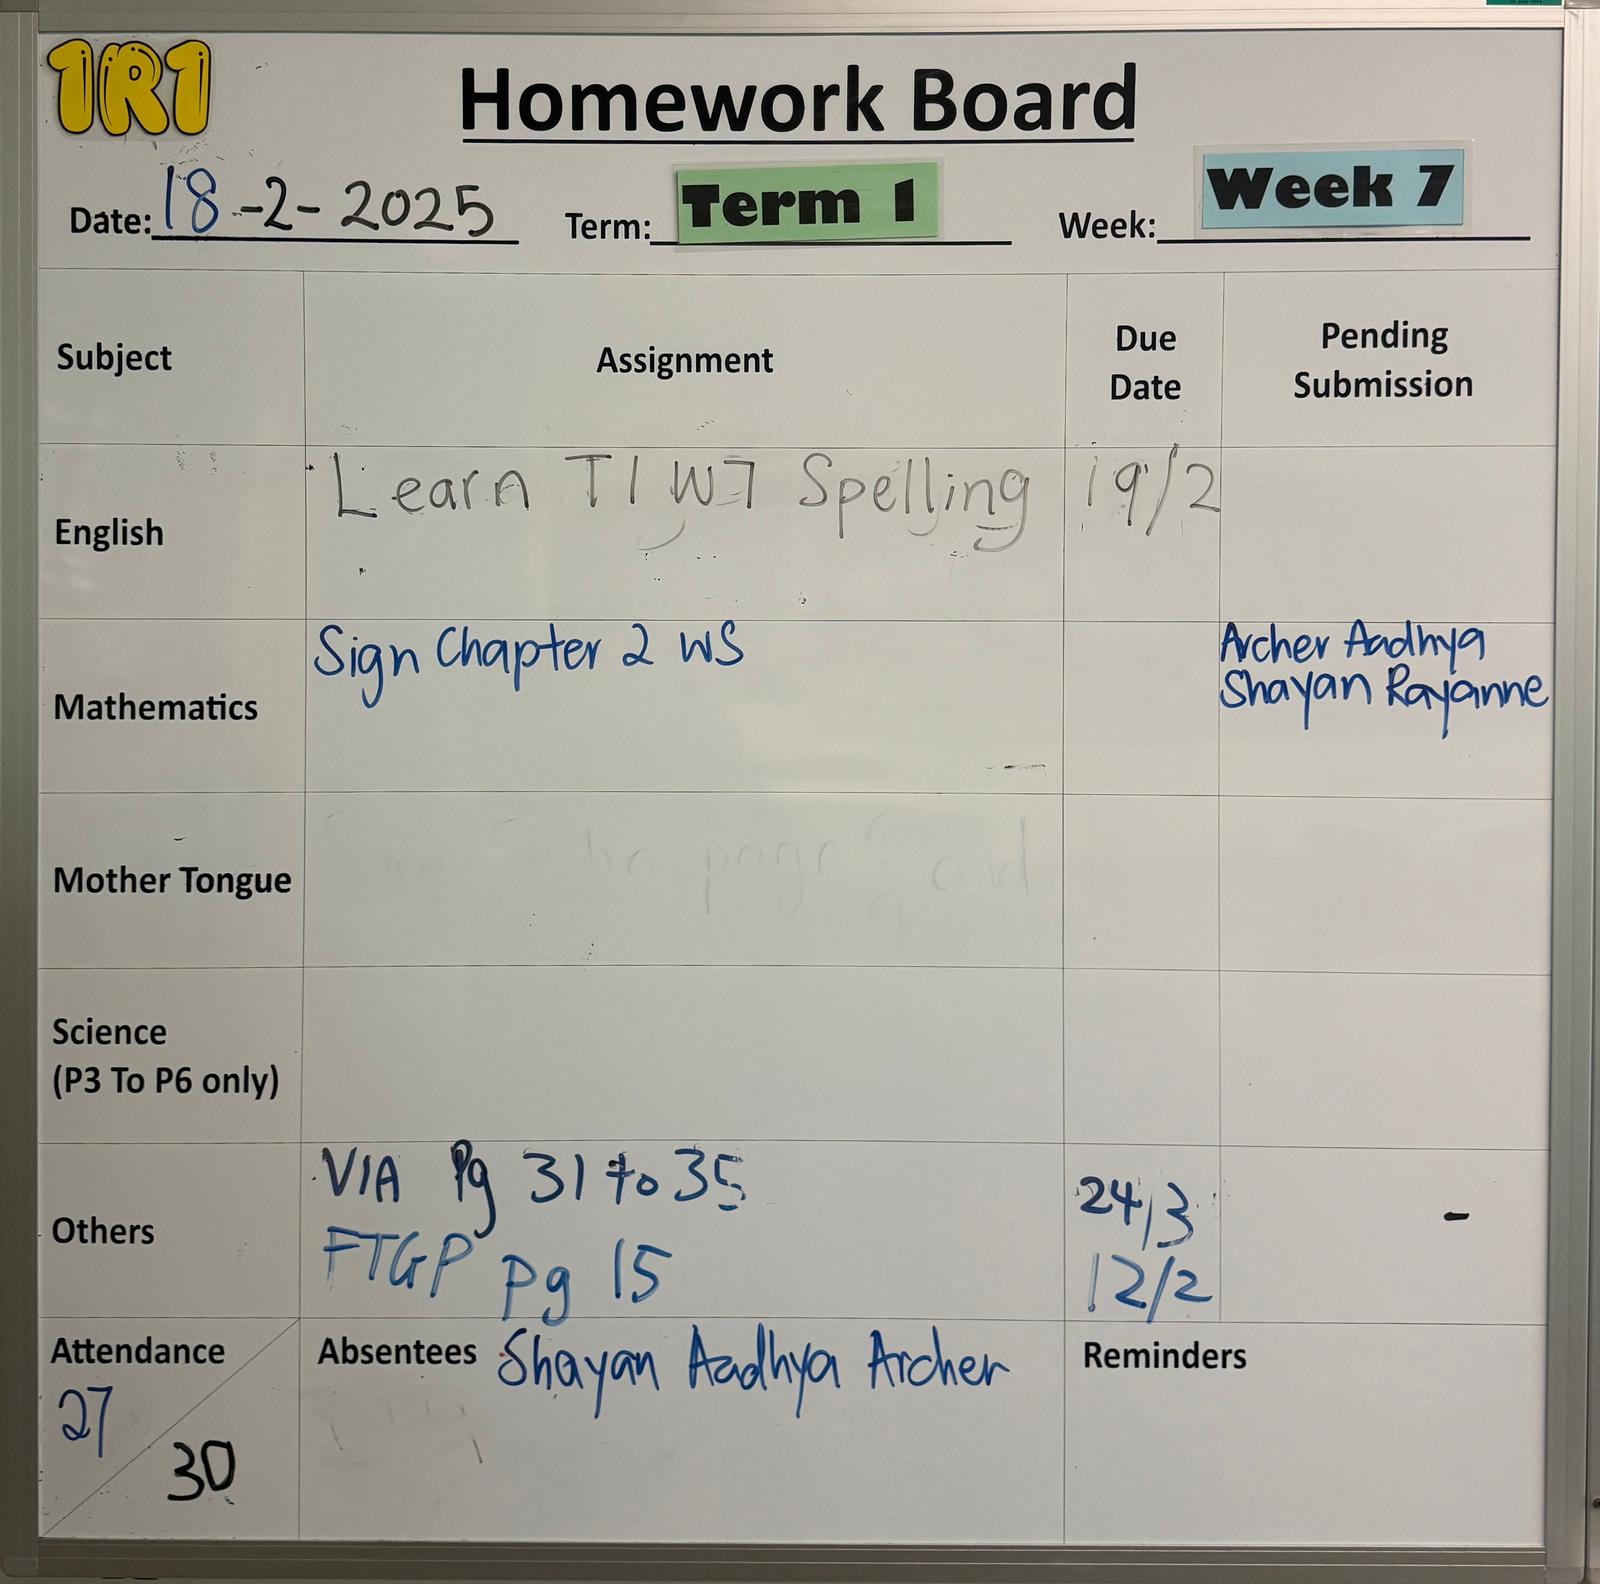 1R1
Homework Board
Date: 18-2-2025 Term: Term 1 Week: Week 7
Subject Assignment Due Date Pending Submission
English Learn T1W7 Spelling 19/2
Mathematics Sign Chapter 2 WS Archer Aadhya
Shayan Rayanne
Mother Tongue page and
Science
(P3 To P6 only)
Others VIA Pg 31 to 35 24/3 -
FTGP pg 15 12/2
Attendance Absentees Shayan Aadhya Archer Reminders
27
30